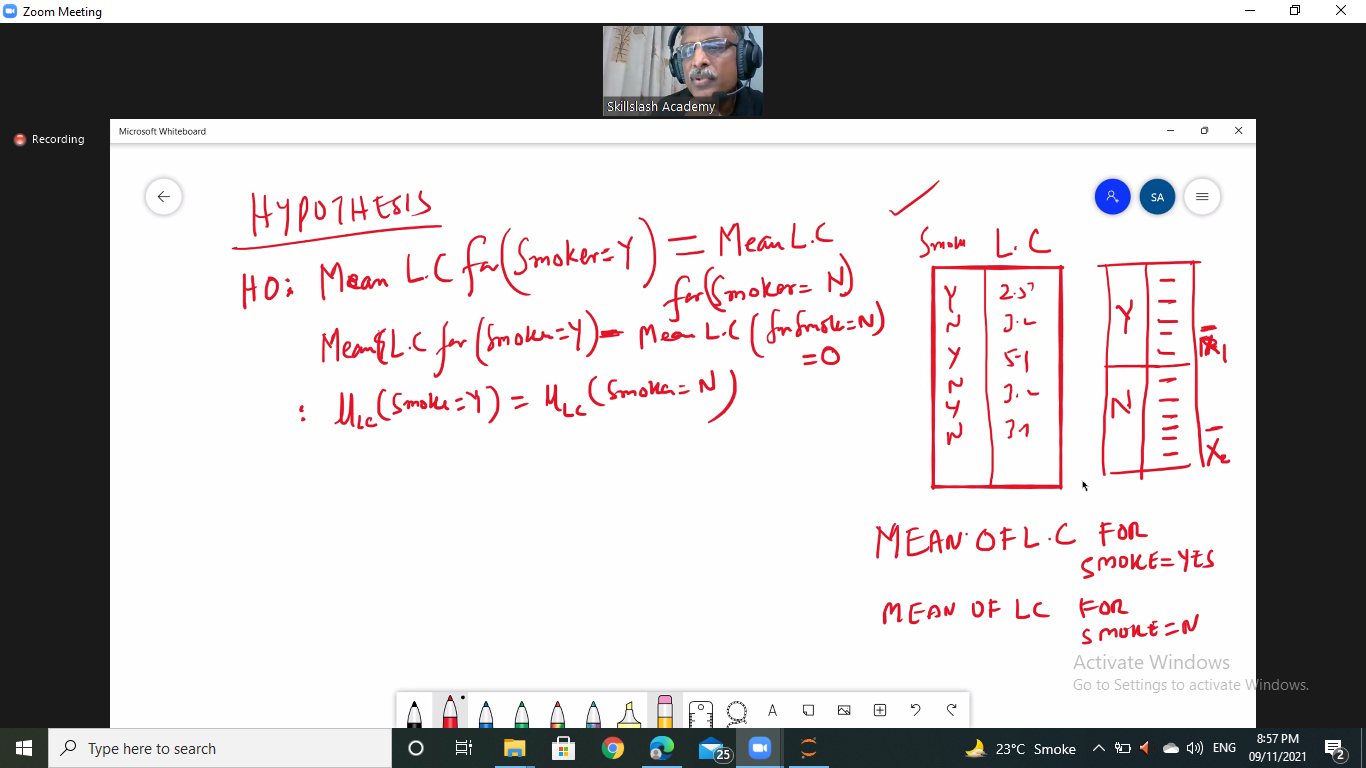 Zoom Meeting
Skillslash Academy
Recording
Microsoft Whiteboard
SA
HYPOTHESIS
H0: Mean L.C for (Smoker=Y) = Mean L.C
for (Smoker= N)
Mean L.C for (Smoker=Y) - Mean L.C (for Smok=N)
=0
: μLC (Smoke=Y) = μLC (Smoker= N)
Smok L.C
Y
N
Y 5.1
N
Y
N
Y
N
X̄1
X̄2
MEAN OF L.C FOR
SMOKE=YES
MEAN OF LC FOR
SMOKE=N
Activate Windows
Go to Settings to activate Windows.
A
Type here to search
25
23°C Smoke
ENG
8:57 PM
09/11/2021
2